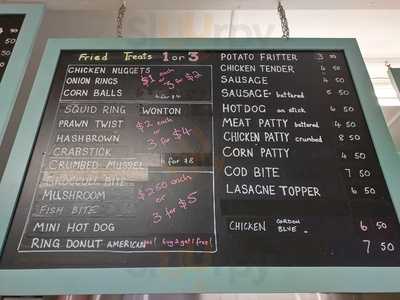 Fried Treats 1 or 3
CHICKEN NUGGETS
ONION RINGS
CORN BALLS
$1 each
or
3 for $2
SQUID RING WONTON
PRAWN TWIST
HASHBROWN
CRABSTICK
CRUMBED MUSSEL
$2 each
or
3 for $4
for $8
BROCCOLI BITE
MUSHROOM
FISH BITE
$2.50 each
or
3 for $5
MINI HOT DOG
RING DONUT AMERICAN buy 2 get 1 free!
POTATO FRITTER 3
CHICKEN TENDER 4 50
SAUSAGE 4 50
SAUSAGE battered 5 50
HOTDOG on stick 6 50
MEAT PATTY battered 4 50
CHICKEN PATTY crumbed 8 50
CORN PATTY 4 50
COD BITE 7 50
LASAGNE TOPPER 6 50
CHICKEN CORDON BLUE 6 50
7 50